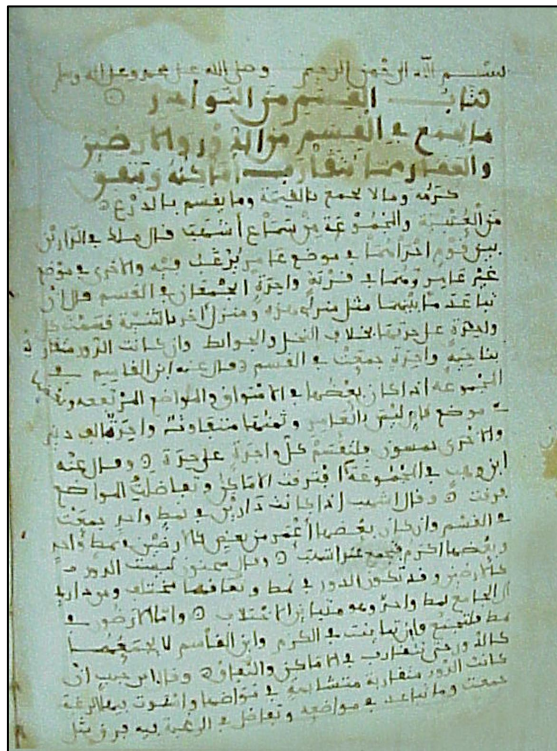 بسم الله الرحمن الرحيم وصلى الله على محمد وعلى اله وسلم
كتاب القسم من النوادر
ما يجمع في القسم من الدور والارضين
والعقار مما يتقارب اماكنه ويتفق
كرمه وما لا يجمع بالقيمة وما يقسم بالذرع
من العتبية والمجموعة من سماع أشهب قال ملك في الدارين
بين قوم احداهما في موضع عامر يرغب فيه والاخرى في موضع
غير عامر وهما في قرية واحدة اتجمعان في القسم قال ان
تباعد ما بينهما مثل منزل ومنزل اخر بالثنية قسمت كل
واحدة على حدتها بخلاف النخل والحوائط وان كانت الدور متقاربة
بناحية واحدة جمعت في القسم وقال عنه ابن القاسم في
المجموعه اذا كان بعضها في الاسواق والمواضع المرتفعه وبعضها
في موضع ليس بالعامر وثمنها متفاوت واحدة الف دينر
والاخرى بخمسين فلتقسم كل واحدة على حدة وقال عنه
ابن وهب في المجموعة اذا افترقت الاماكن وتفاضلت المواضع
فرقت وقال اشهب اذا كانت دارين في نمط واحد جمعت
في القسم وان كان بعضها أعمر من بعض كالارضين في نمط واحد
وبعضها اكرم فتجمع عند اشهب وقال سحنون ليست الدور
كالارضين وقد تكون الدور في نمط ونفاقها مختلف
الجامع نمط واحد وهو متباين الاختلاف واما الارضون في
نمط فلتجمع وان تباينت في الكرم وابن القاسم لا يجمعهما
كالدور حتى تتقارب في الاماكن والنفاق وقال ابن حبيب ان
كانت الدور متقاربة متشابهة في مواضعها واتفقت فيها الرغبة
جمعت وما تباعد في مواضعه وتفاضل في الرغبة فيه فرق مثل